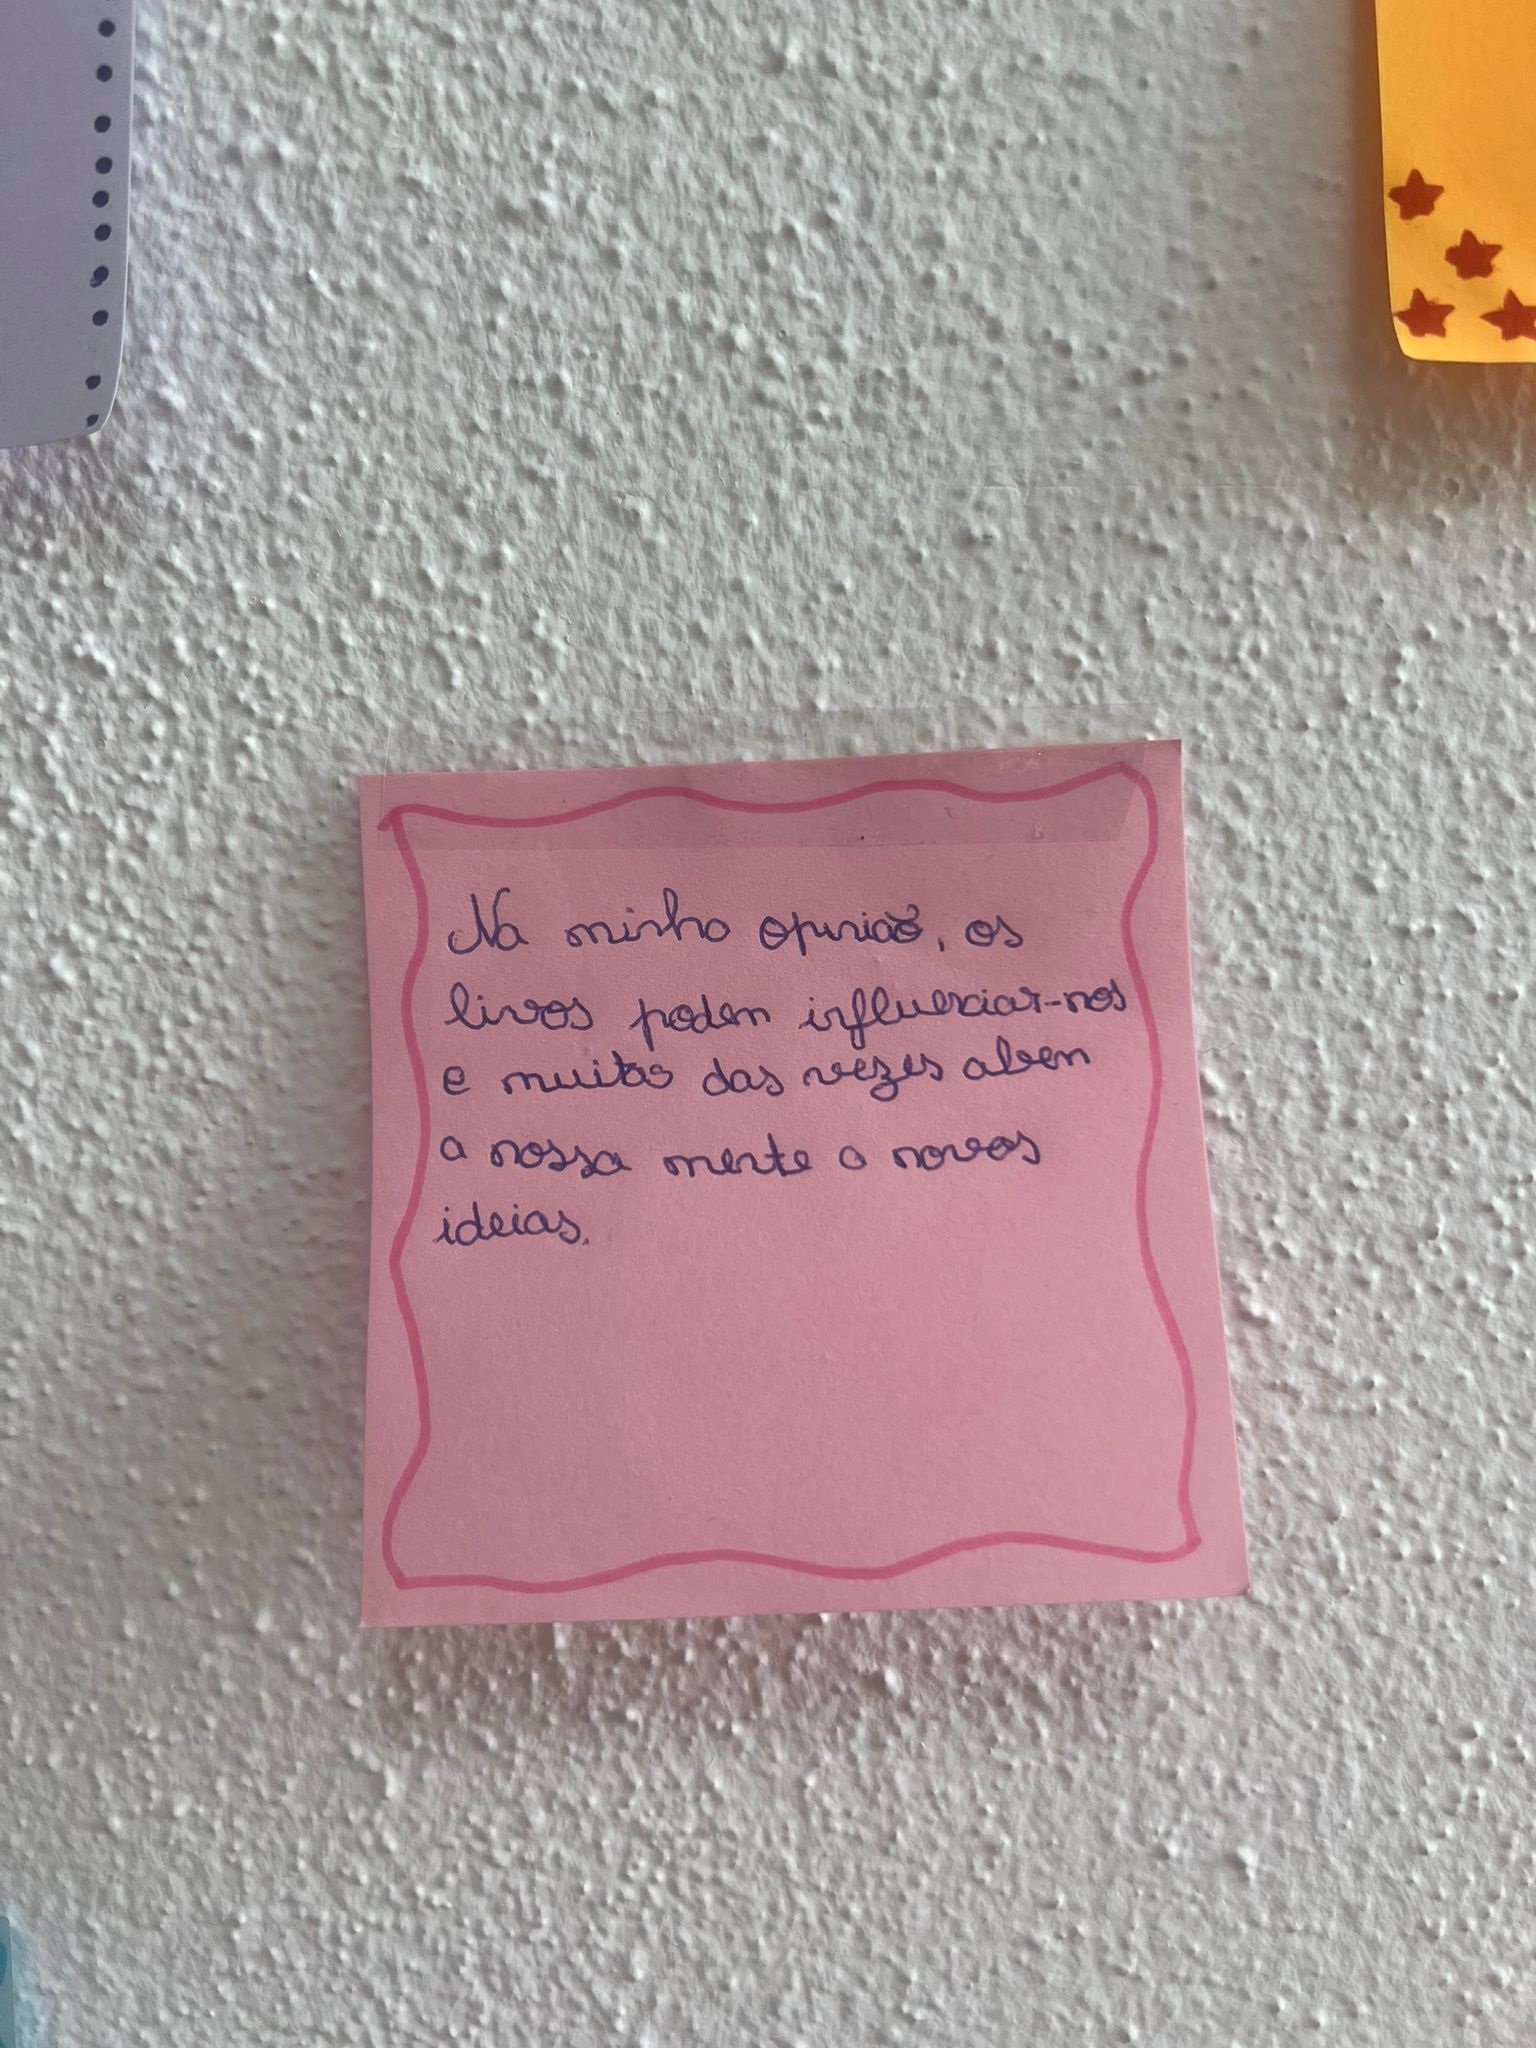 Na minha opinião, os
livros podem influenciar-nos
e muitas das vezes abrem
a nossa mente a novas
ideias.